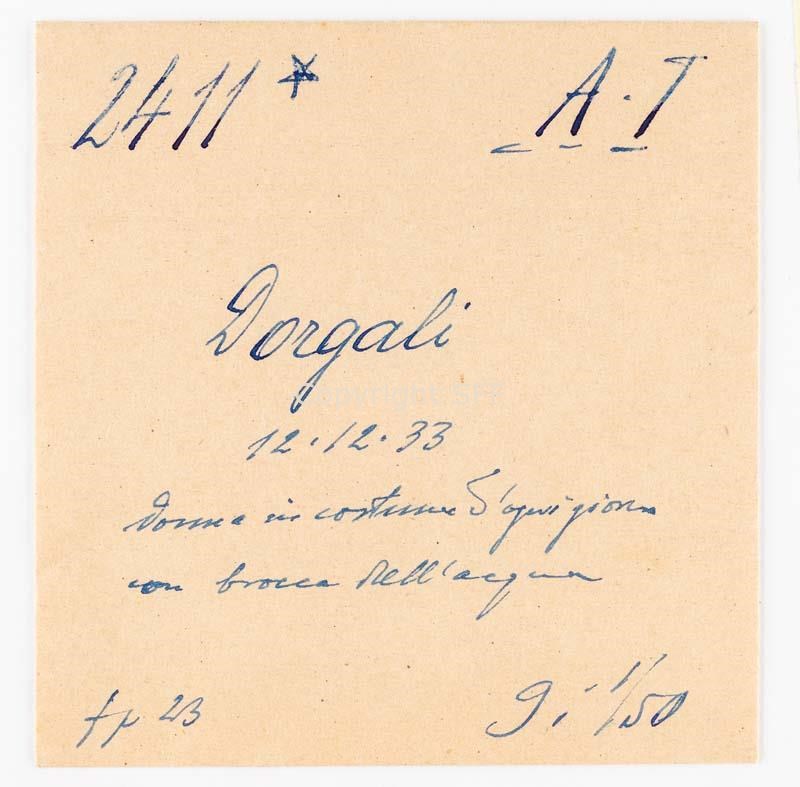 2411 * A.T
Dorgali
12.12.33
donna in costume d'ogni giorno
con brocca dell'acqua
fp 23 9i 1/50